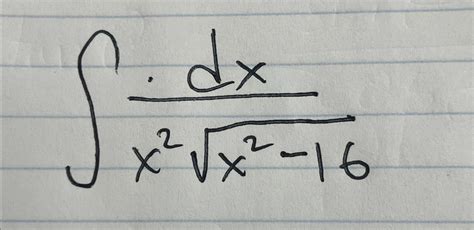 ∫ dx / (x² √(x² - 16))